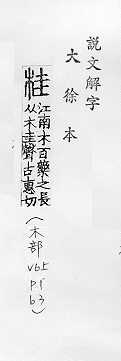 說文解字
大徐本
桂
江南木百藥之長
从木圭聲古惠切
(木部 v6上 b3)